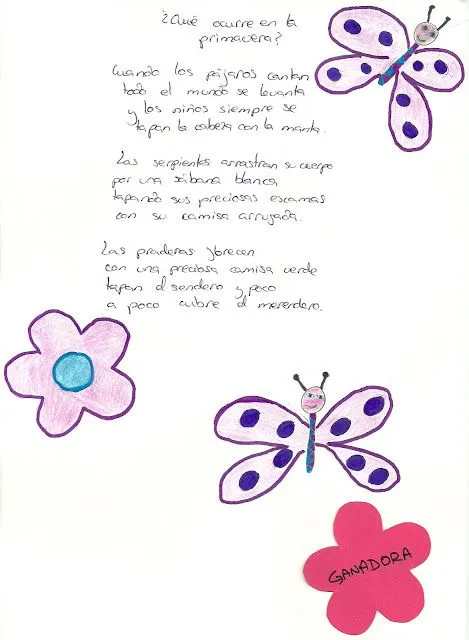 ¿Qué ocurre en la
primavera?
Cuando los pájaros cantan
todo el mundo se levanta
y los niños siempre se
tapan la cabeza con la manta.
Las serpientes arrastran su cuerpo
por una sábana blanca
tapando sus preciosas escamas
con su camisa arrugada.
Las praderas florecen
con una preciosa camisa verde
tapan el sendero y poco
a poco cubre el merendero.
GANADORA